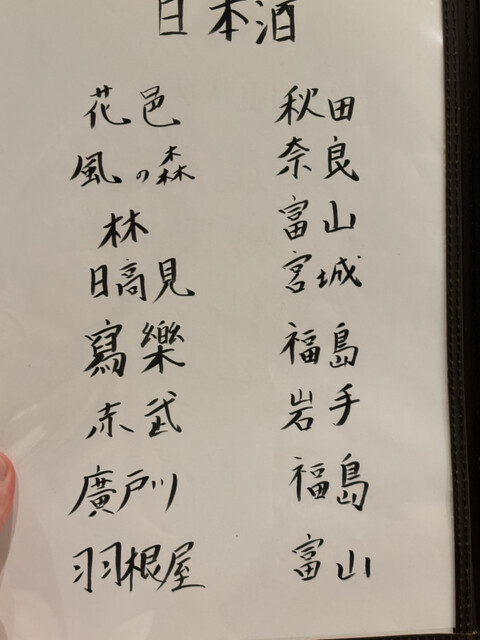 日本酒
花邑 秋田
風の森 奈良
林 富山
日高見 宮城
寫樂 福島
赤武 岩手
廣戸川 福島
羽根屋 富山